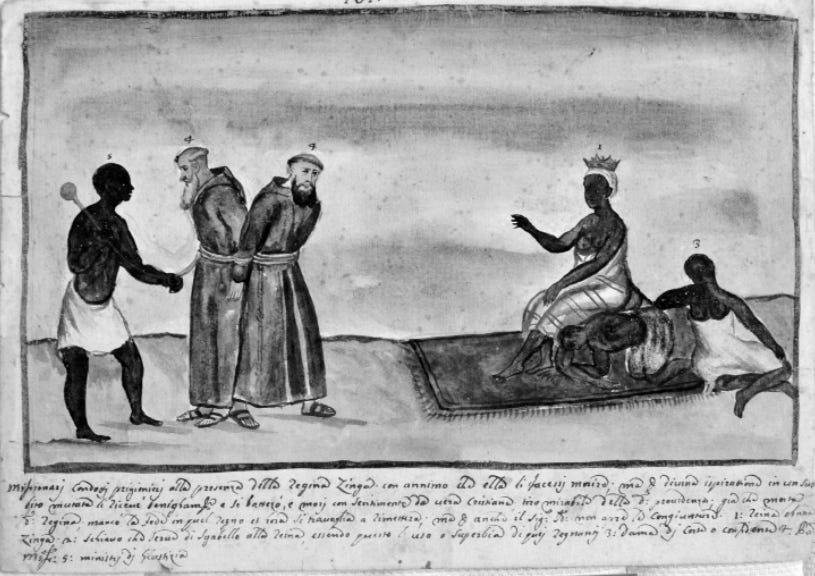 5
4
4
1
3
Missionarj Condotj prigionieri alla presenza della Regina Zinga con annimo che ella li facessj morire; ma divina ispiratione in un su
bito mutata li riceve e si battezò, e morj con sentimento da vera Cristiana tiro mirabile della providenza; già che morta
Regina mancò la fede in quel Regno et ora si travaglia a rimetterla; ma anche il non
Zinga 2: schiavo che serve di sgabello alla Reina, essendo questo uso o superbia di quej regnanti 3: Dama di Corte o confidente 4
5: ministrj di Giustizia